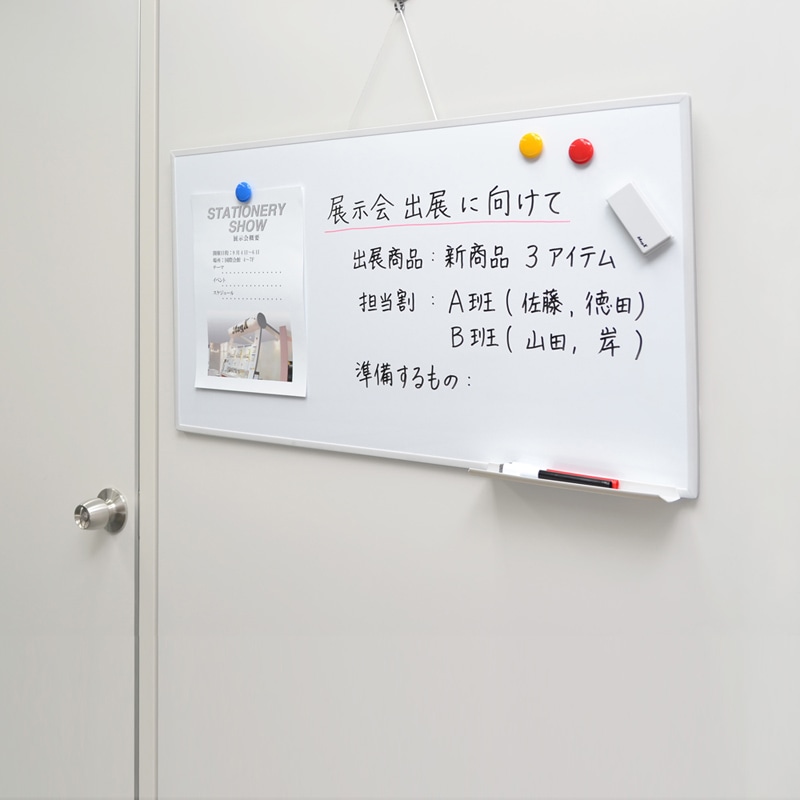 STATIONERY
SHOW
展示会概要
テーマ
イベント
スケジュール
展示会 出展 に向けて
出展商品：新商品 3 アイテム
担当割 ： A班（佐藤, 徳田）
B班（山田, 岸 ）
準備するもの：